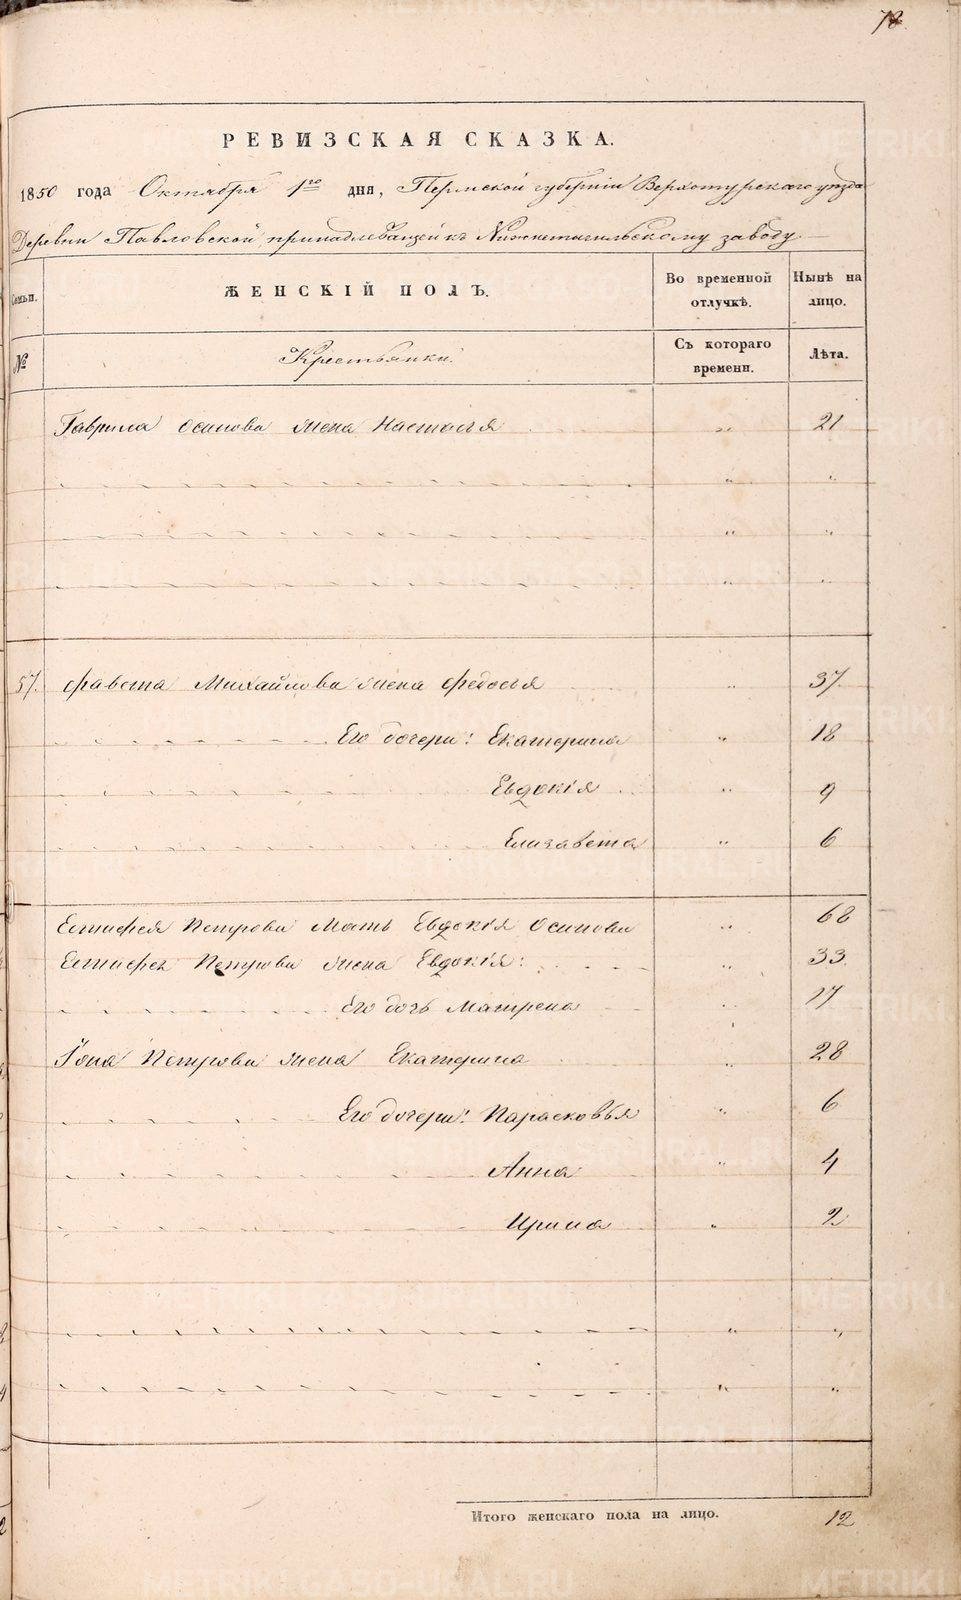 78.
РЕВИЗСКАЯ СКАЗКА.
1850 года Октября 1го дня, Пермской губернiи Верхотурскаго уѣзда
Деревни Павловской, принадлежащей къ Нижнетагильскому заводу
Семьи. ЖЕНСКIЙ ПОЛЪ. Во временной отлучкѣ. Нынѣ на лицо.
№ Крестьянки. Съ котораго времени. Лѣта.
Гаврила Осипова жена Настасья „ 21
„ „
„ „
„ „
57. Фавста Михайлова жена Федосья „ 37.
Его дочери: Екатерина „ 18
Евдокiя „ 9
Елизавета „ 6
Естифея Петрова Мать Евдокiя Осипова „ 68
Естифея Петрова жена Евдокiя: „ 33.
Его дочь Матрена „ 17
Iона Петрова жена Екатерина „ 28
Его дочери: Парасковья „ 6
Анна „ 4
Ирина „ 2
„ „
„ „
Итого женскаго пола на лицо. 12
METRIKI.GASO-URAL.RU